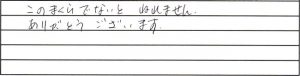 このまくらでないと ねれません.
ありがとう ございます.